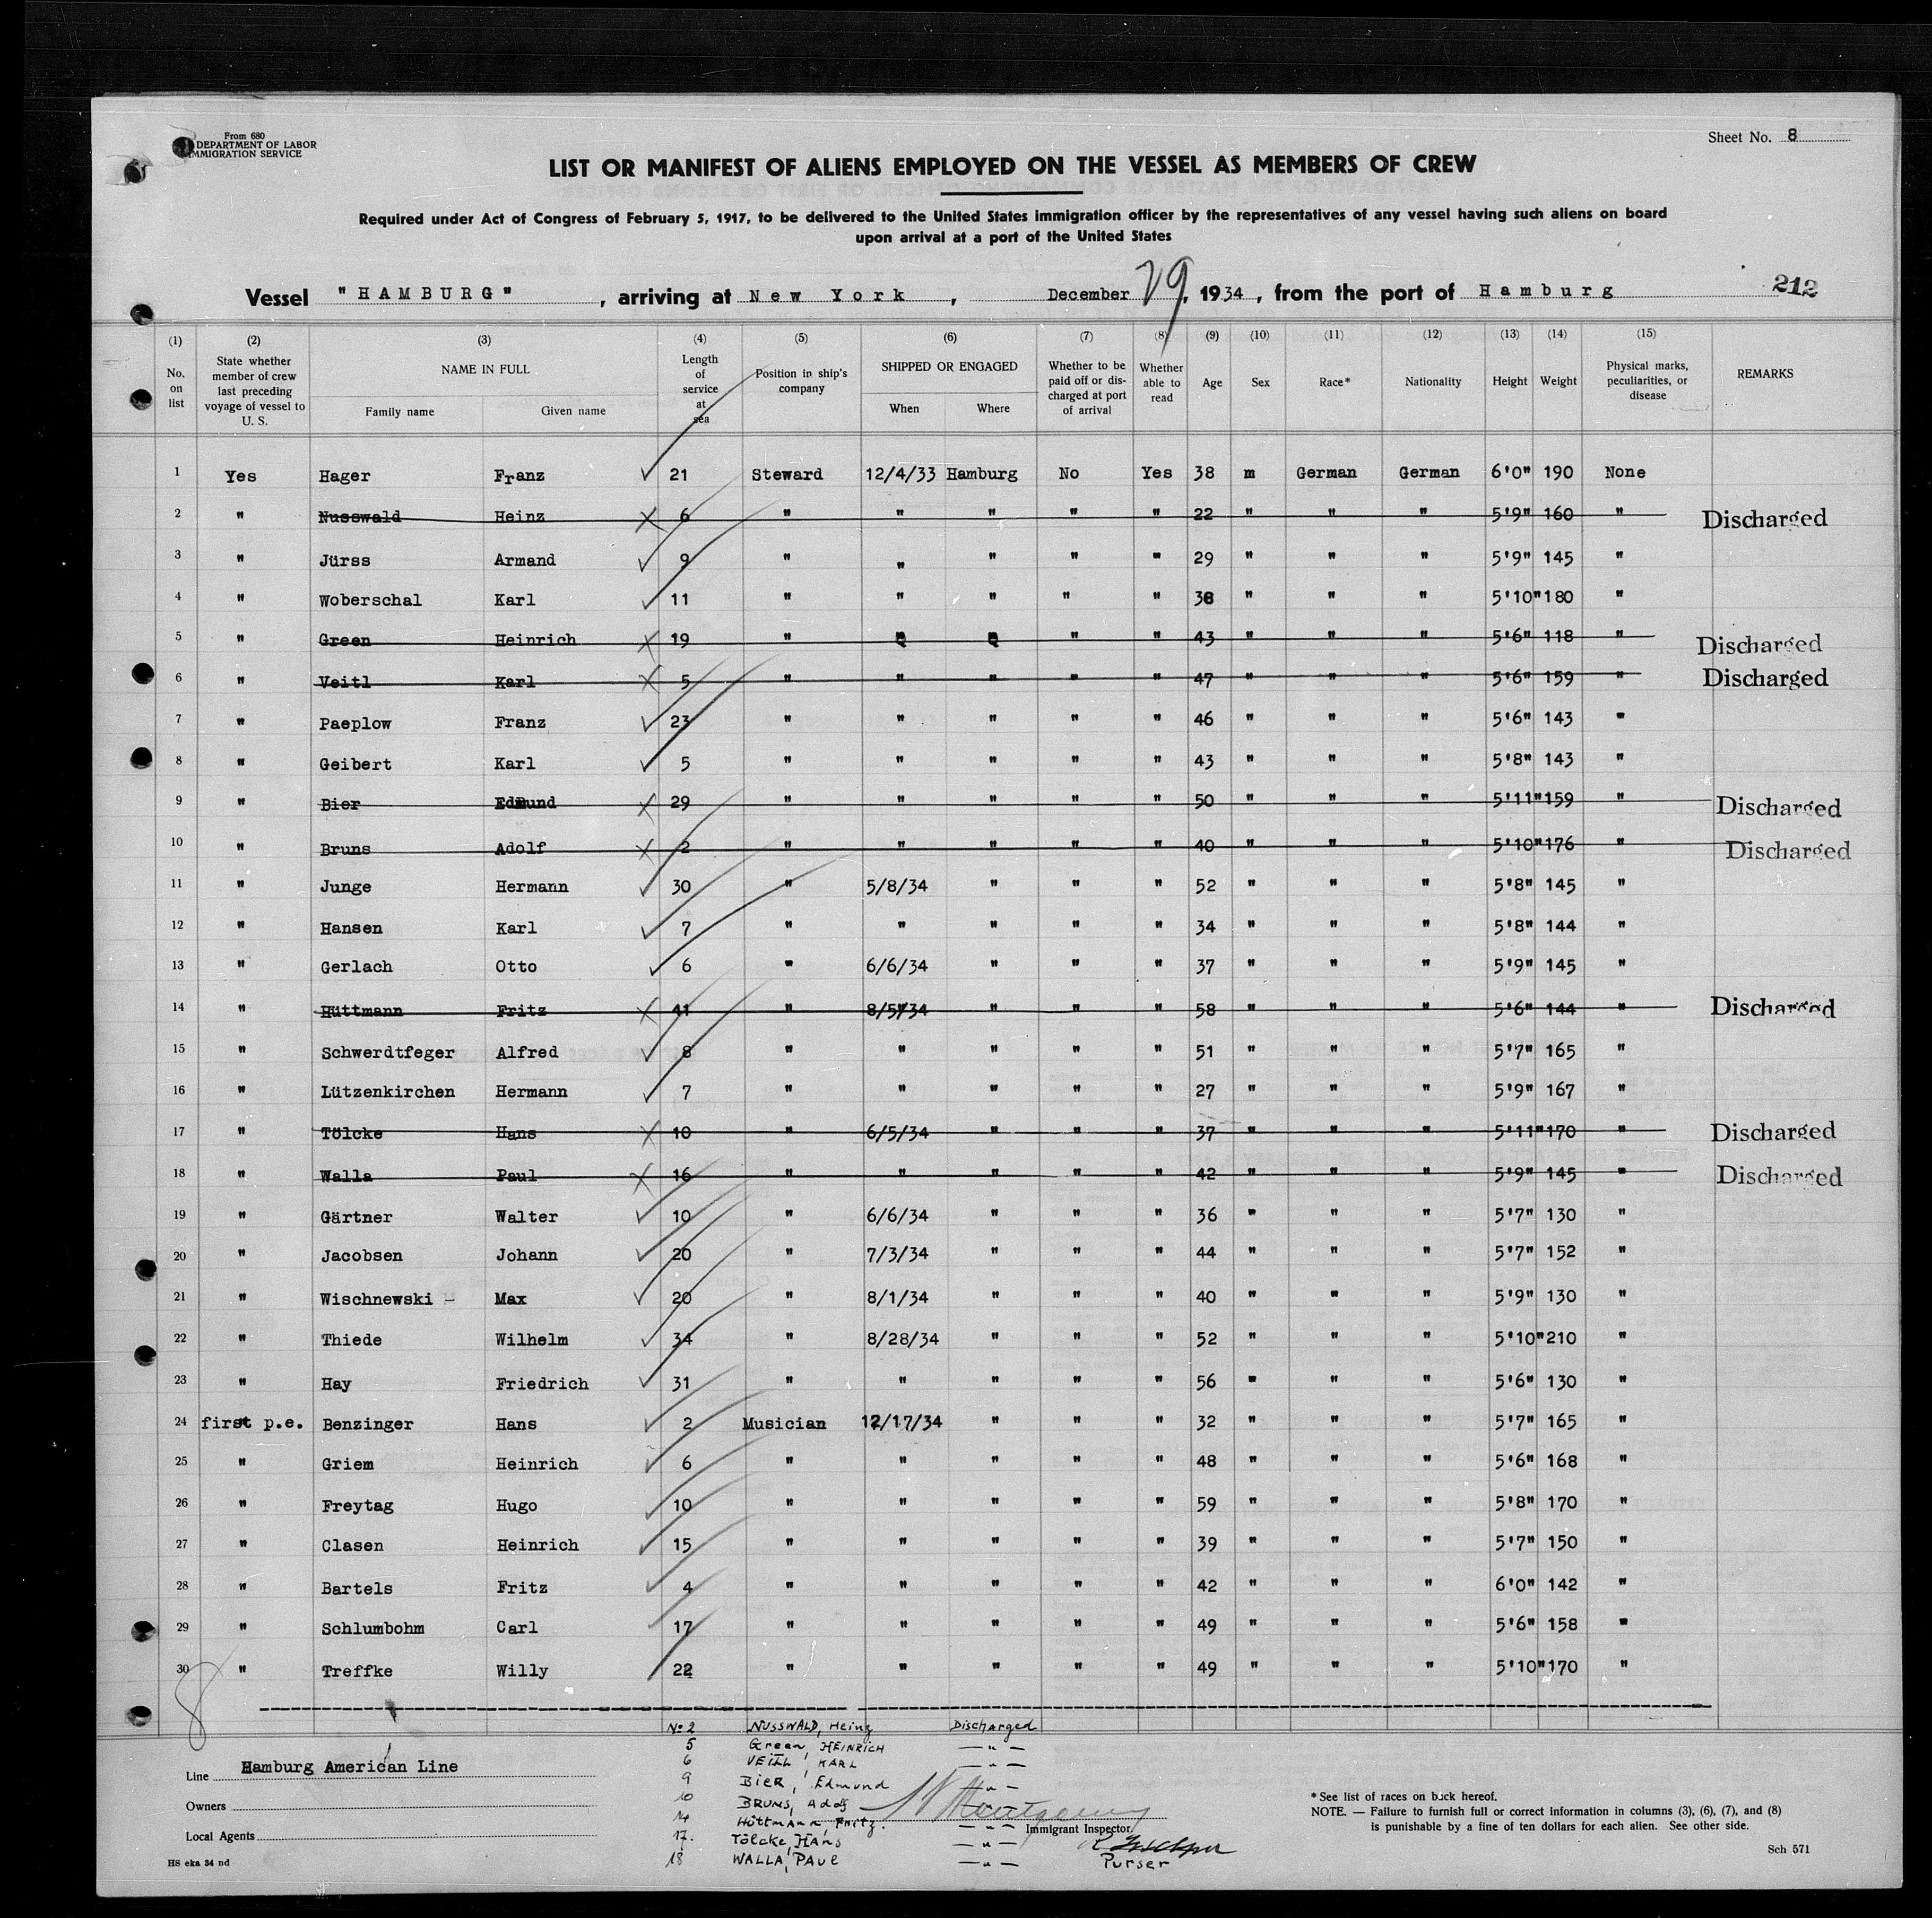 From 680
DEPARTMENT OF LABOR
IMMIGRATION SERVICE
Sheet No. 8
LIST OR MANIFEST OF ALIENS EMPLOYED ON THE VESSEL AS MEMBERS OF CREW
Required under Act of Congress of February 5, 1917, to be delivered to the United States immigration officer by the representatives of any vessel having such aliens on board
upon arrival at a port of the United States
Vessel "HAMBURG", arriving at New York, December 29, 1934, from the port of Hamburg 212
(1) (2) (3) (4) (5) (6) (7) (8) (9) (10) (11) (12) (13) (14) (15)
No. on list State whether member of crew last preceding voyage of vessel to U. S. NAME IN FULL Family name Given name Length of service at sea Position in ship's company SHIPPED OR ENGAGED When Where Whether to be paid off or discharged at port of arrival Whether able to read Age Sex Race* Nationality Height Weight Physical marks, peculiarities, or disease REMARKS
1 Yes Hager Franz 21 Steward 12/4/33 Hamburg No Yes 38 m German German 6'0" 190 None
2 " Nusswald Heinz 6 " " " " " 22 " " " 5'9" 160 " Discharged
3 " Jürss Armand 9 " " " " " 29 " " " 5'9" 145 "
4 " Woberschal Karl 11 " " " " " 38 " " " 5'10" 180 "
5 " Green Heinrich 19 " " " " " 43 " " " 5'6" 118 " Discharged
6 " Veitl Karl 5 " " " " " 47 " " " 5'6" 159 " Discharged
7 " Paeplow Franz 23 " " " " " 46 " " " 5'6" 143 "
8 " Geibert Karl 5 " " " " " 43 " " " 5'8" 143 "
9 " Bier Edmund 29 " " " " " 50 " " " 5'11" 159 " Discharged
10 " Bruns Adolf 2 " " " " " 40 " " " 5'10" 176 " Discharged
11 " Junge Hermann 30 " 5/8/34 " " " 52 " " " 5'8" 145 "
12 " Hansen Karl 7 " " " " " 34 " " " 5'8" 144 "
13 " Gerlach Otto 6 " 6/6/34 " " " 37 " " " 5'9" 145 "
14 " Hüttmann Fritz 41 " 8/5/34 " " " 58 " " " 5'6" 144 " Discharged
15 " Schwerdtfeger Alfred 8 " " " " " 51 " " " 5'7" 165 "
16 " Lützenkirchen Hermann 7 " " " " " 27 " " " 5'9" 167 "
17 " Tölcke Hans 10 " 6/5/34 " " " 37 " " " 5'11" 170 " Discharged
18 " Walla Paul 16 " " " " " 42 " " " 5'9" 145 " Discharged
19 " Gärtner Walter 10 " 6/6/34 " " " 36 " " " 5'7" 130 "
20 " Jacobsen Johann 20 " 7/3/34 " " " 44 " " " 5'7" 152 "
21 " Wischnewski - Max 20 " 8/1/34 " " " 40 " " " 5'9" 130 "
22 " Thiede Wilhelm 34 " 8/28/34 " " " 52 " " " 5'10" 210 "
23 " Hay Friedrich 31 " " " " " 56 " " " 5'6" 130 "
24 first p.e. Benzinger Hans 2 Musician 12/17/34 " " " 32 " " " 5'7" 165 "
25 " Griem Heinrich 6 " " " " " 48 " " " 5'6" 168 "
26 " Freytag Hugo 10 " " " " " 59 " " " 5'8" 170 "
27 " Clasen Heinrich 15 " " " " " 39 " " " 5'7" 150 "
28 " Bartels Fritz 4 " " " " " 42 " " " 6'0" 142 "
29 " Schlumbohm Carl 17 " " " " " 49 " " " 5'6" 158 "
30 " Treffke Willy 22 " " " " " 49 " " " 5'10" 170 "
8
No 2 NUSSWALD, Heinz Discharged
5 Green, HEINRICH — " —
6 VEITL, KARL — " —
9 BIER, Edmund — " —
10 BRUNS, Adolf
14 Hüttmann, Fritz. — " —
17. Tölcke, HANS — " —
18 WALLA, PAUL — " —
Line Hamburg American Line
Owners
Local Agents
H8 eka 34 nd
Montgomery
Immigrant Inspector.
Purser
* See list of races on back hereof.
NOTE. — Failure to furnish full or correct information in columns (3), (6), (7), and (8)
is punishable by a fine of ten dollars for each alien. See other side.
Sch 571